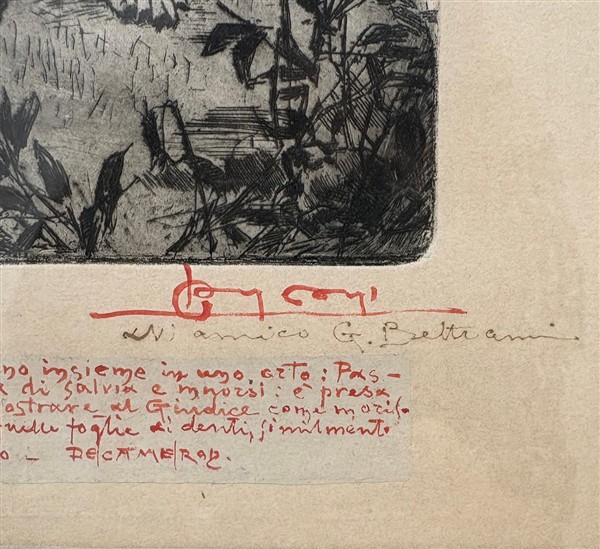 All'amico G. Beltrami
no insieme in uno orto: Pas-
di Salvia e muorsi: è presa
ostrare al Giudice come moris-
quelle foglie ai denti, similmente
o - DECAMERON.